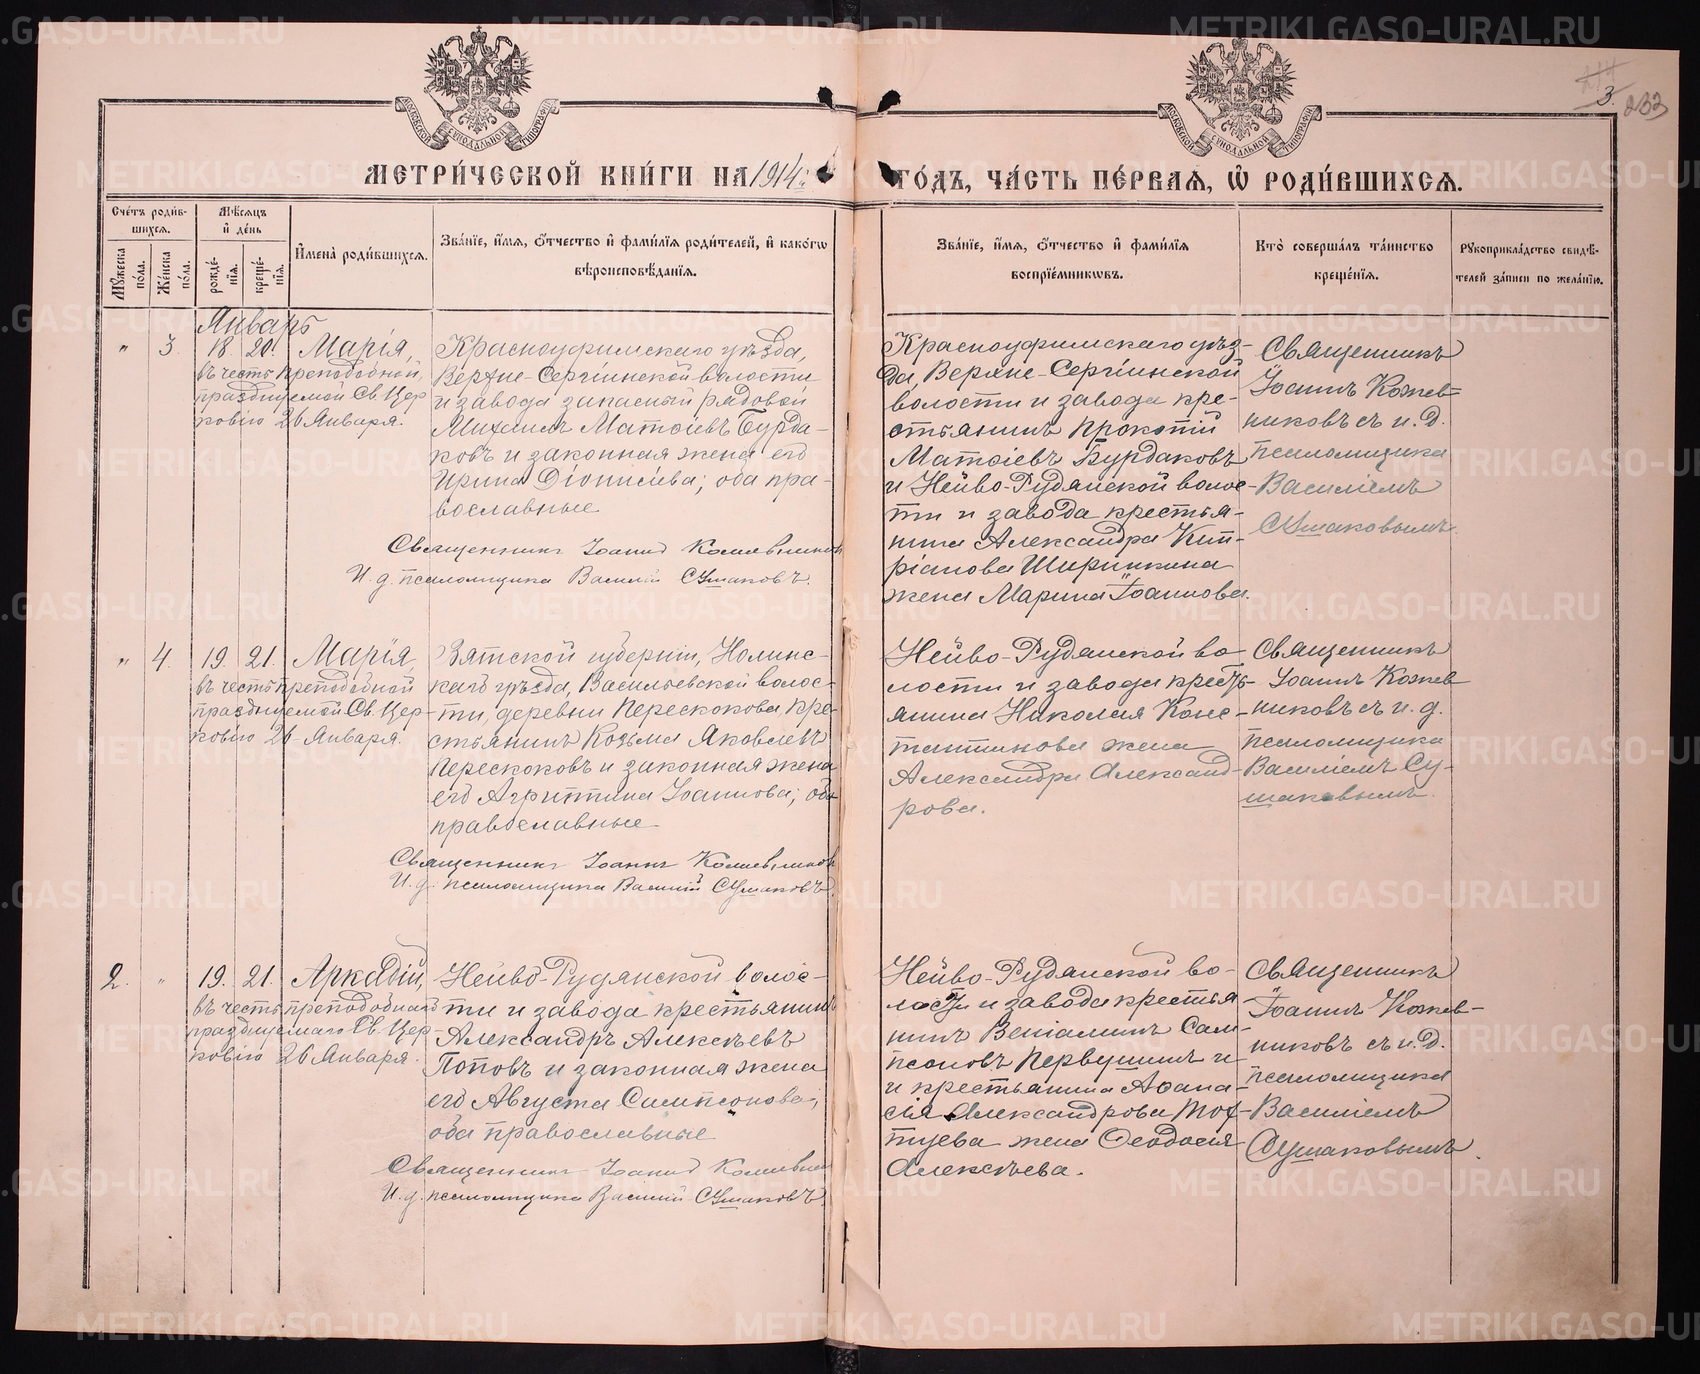 МЕТРИ́ЧЕСКОЙ КНИ́ГИ НА 1914 ГО́ДЪ, ЧА́СТЬ ПЕ́РВАЯ, Ѡ РОДИ́ВШИХСЯ.
3.
233
МОСКОВСКОЙ СѴНОДАЛЬНОЙ ТИПОГРАФІИ
МОСКОВСКОЙ СѴНОДАЛЬНОЙ ТИПОГРАФІИ
Сче́тъ роди́в-
шихся.
Му́жеска
по́ла.
Же́нска
по́ла.
Мѣ́сяцъ
и де́нь
рожде́-
нїя.
креще́-
нїя.
Имена̀ роди́вшихся.
Зва́нїе, и́мя, ѻ́тчество и фами́лїя роди́телей, и како́гѡ
вѣроисповѣ́данїя.
Зва́нїе, и́мя, ѻ́тчество и фами́лїя
воспрїе́мникѡвъ.
Кто̀ соверша́лъ та́инство
креще́нїя.
Рукоприкла́дство свидѣ́-
телей за́писи по жела́нїю.
Январь
" 3. 18. 20. Марія,
въ честь преподобной,
празднуемой Св. Цер-
ковію 26 Января.
Красноуфимскаго уѣзда,
Верхне-Сергіинской волости
и завода запасный рядовой
Михаилъ Матѳіевъ Бурда-
ковъ и законная жена его
Ирина Діонисіева; оба пра-
вославные
Священникъ Іоаннъ Кожевниковъ
И. д. псаломщика Василій Сушаковъ.
Красноуфимскаго уѣз-
да, Верхне-Сергіинской
волости и завода кре-
стьянинъ Прокопій
Матѳіевъ Бурдаковъ
и Нейво-Рудянской волос-
ти и завода крестья-
нина Александра Кип-
ріанова Ширинкина
жена Марина Іоаннова.
Священникъ
Іоаннъ Кожев-
никовъ съ и. д.
псаломщика
Василіемъ
Сушаковымъ
" 4. 19. 21. Марія,
въ честь преподобной
празднуемой Св. Цер-
ковію 26 Января.
Вятской губерніи, Нолинс-
каго уѣзда, Васильевской волос-
ти, деревни Перескокова, кре-
стьянинъ Козьма Яковлевъ
Перескоковъ и законная жена
его Агриппина Іоаннова; оба
православные
Священникъ Іоаннъ Кожевниковъ
И. д. псаломщика Василій Сушаковъ.
Нейво-Рудянской во-
лости и завода кресть-
янина Николая Конс-
тантинова жена
Александра Александ-
рова.
Священникъ
Іоаннъ Кожев-
никовъ съ и. д.
псаломщика
Василіемъ Су-
шаковымъ.
2. " 19. 21. Аркадій,
въ честь преподобнаго
празднуемаго Св. Цер-
ковію 26 Января.
Нейво-Рудянской волос-
ти и завода крестьянинъ
Александръ Алексѣевъ
Поповъ и законная жена
его Августа Сампсонова;
оба православные
Священникъ Іоаннъ Кожевниковъ
И. д. псаломщика Василій Сушаковъ.
Нейво-Рудянской во-
лости и завода крестья-
нинъ Веніаминъ Сам-
псоновъ Первушинъ и
и крестьянина Аѳана-
сія Александрова
жена Ѳеодосія
Алексѣева.
Священникъ
Іоаннъ Кожев-
никовъ съ и. д.
псаломщика
Василіемъ
Сушаковымъ.
METRIKI.GASO-URAL.RU